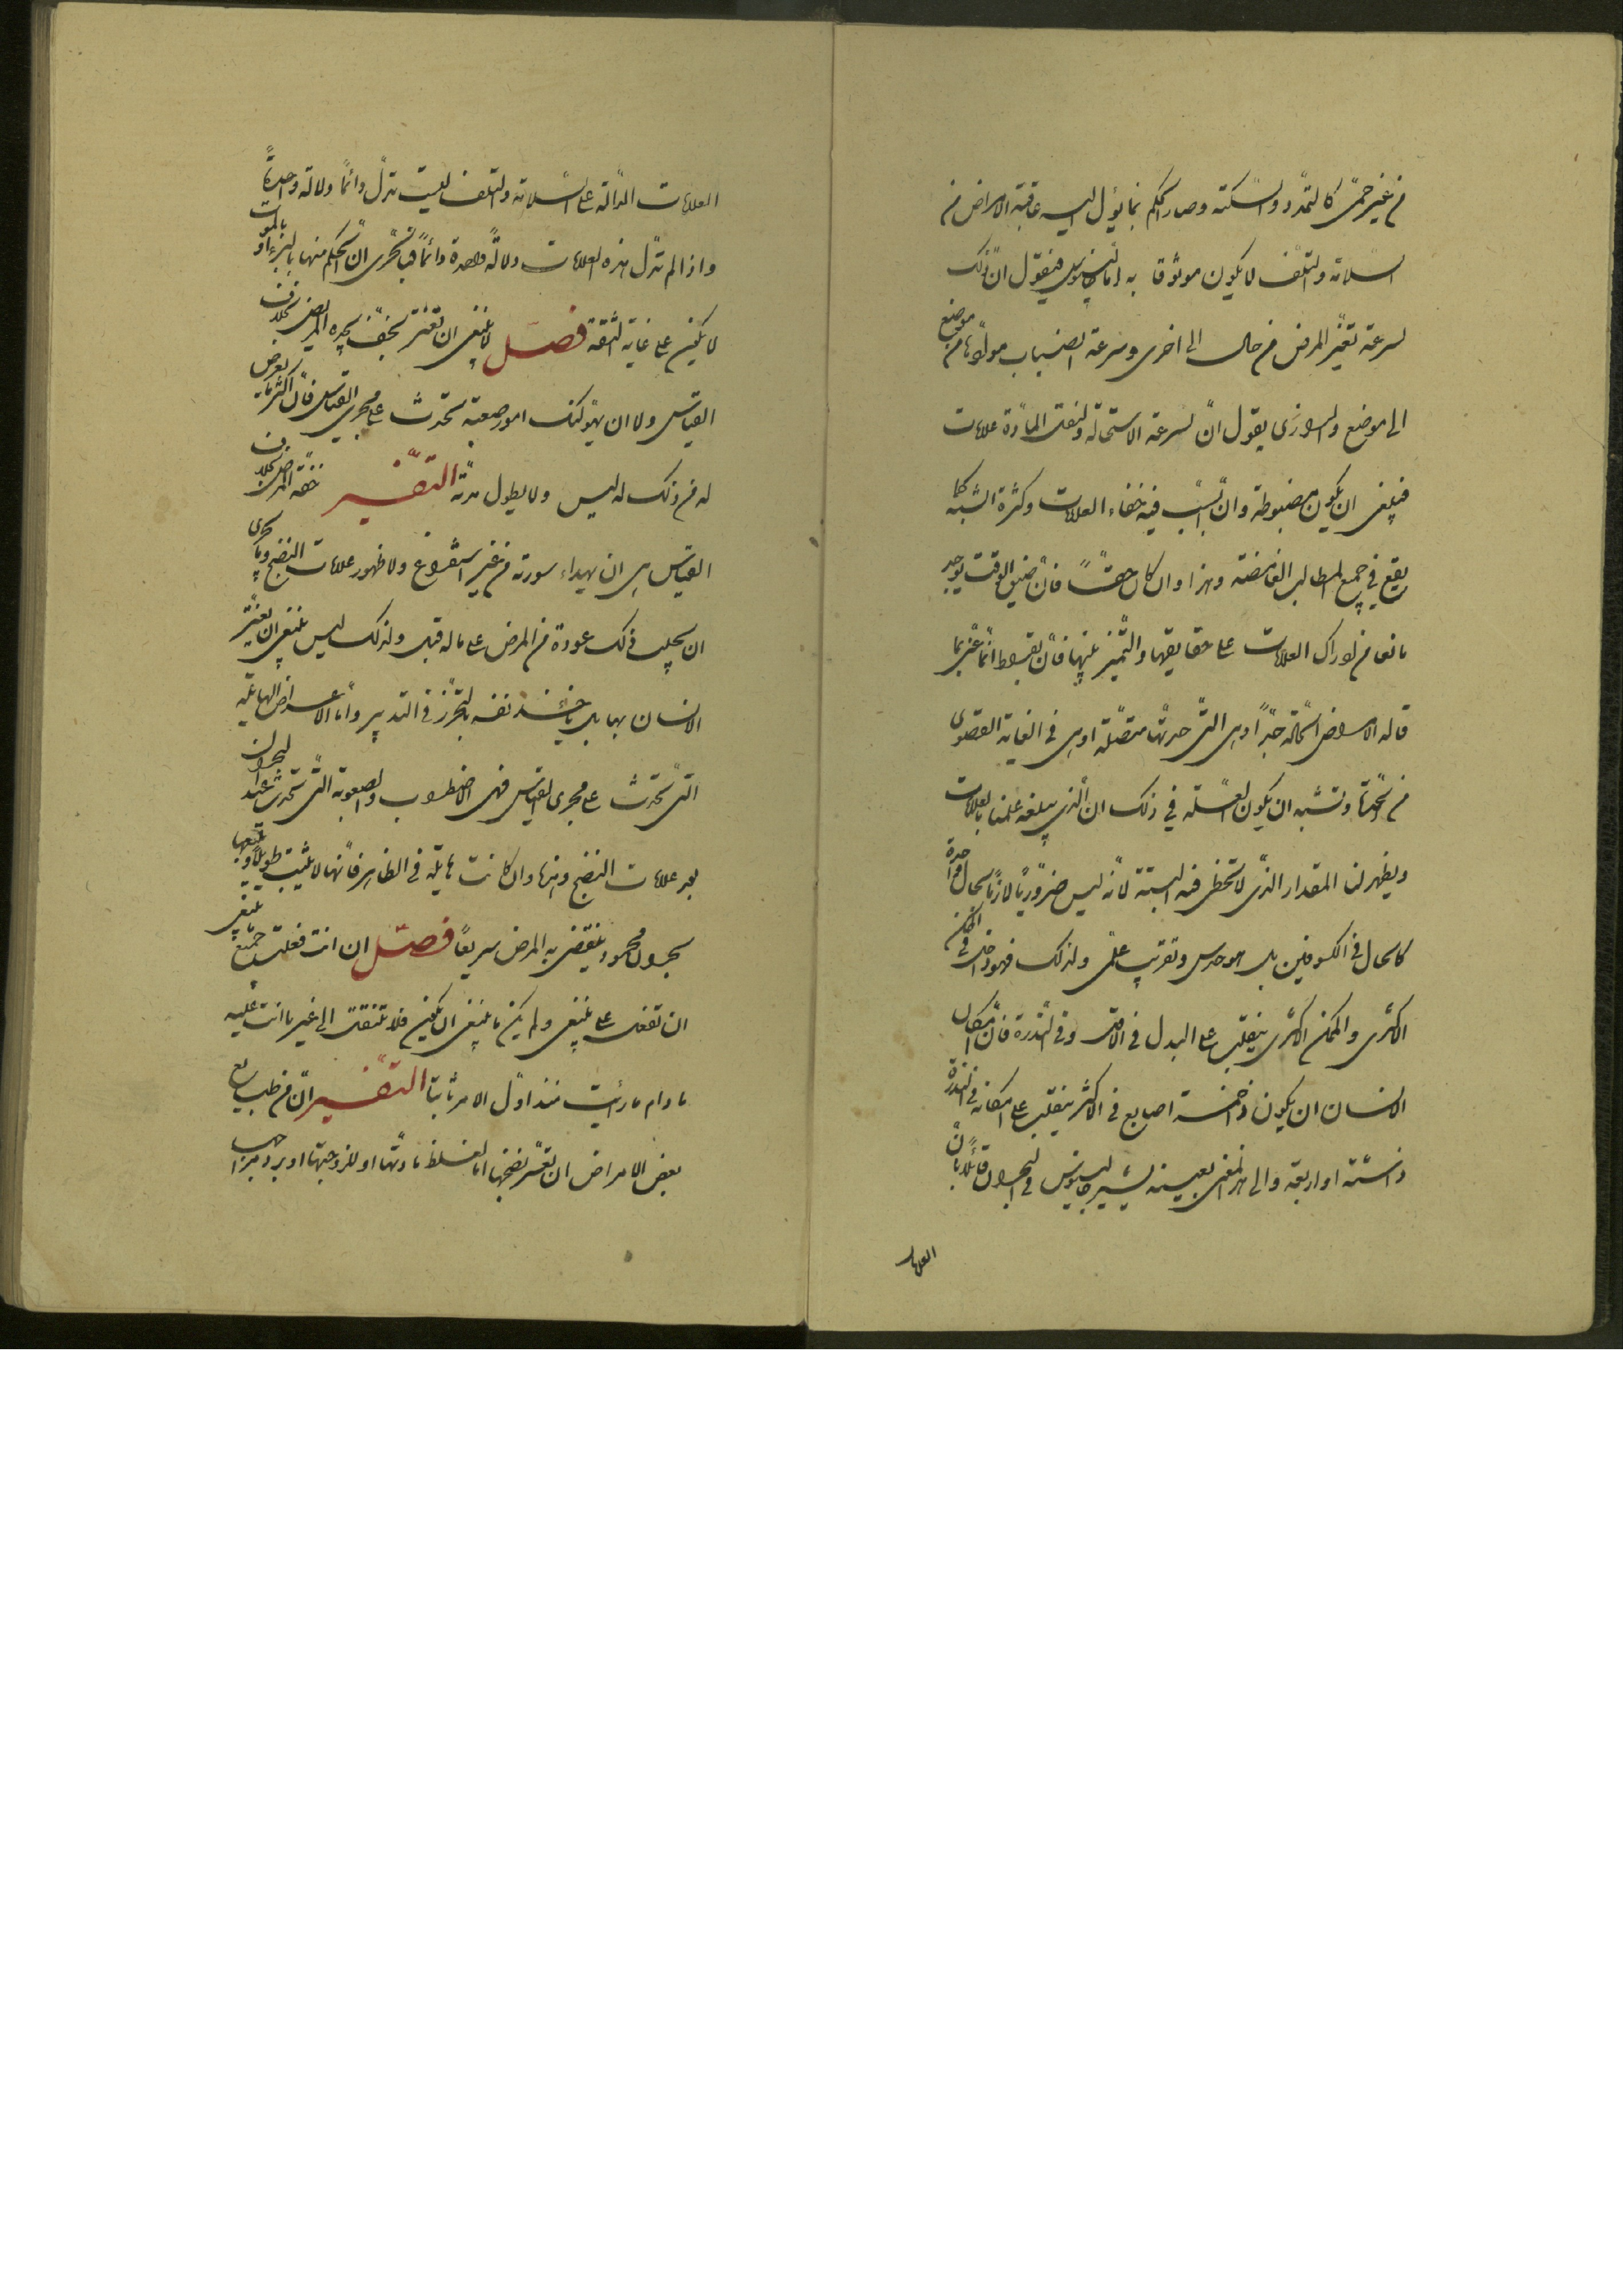 من غير حمّى كالتمدّد والسّكتة وصار الحكم بما يؤل اليه عاقبة الامراض من
السلامة والتلف لا يكون موثوقا به امّا جالينوس فيقول انّ ذلك
لسرعة تغيّر المرض من حال الى اخرى وسرعة انصباب موادّها من موضع
الى موضع والرازى يقول انّ لسرعة الاستحالة ونقلة المادّة علامات
فينبغى ان يكون مضبوطة وانّ السّبب فيه خفاء العلامات وكثرة الشبه كما
يقع فى جميع المطالب الغامضة وهذا وان كان حقّاً فانّ ضيق الوقت يوجد
مانعا من ادراك العلامات على حقايقها والتّميز بينها فانّ بقراط انّما عنى بما
قاله الامراض الحادّة جدّاً وهى التّى حدّتها متصّلة او هى فى الغاية القصوى
من الحدّة ويشبه ان يكون العلّة فى ذلك ان الّذى يبلغه علمنا بالعلامات
ويظهر لنا المقدار الّذى لا يتخطى فيه البتّة لانّه ليس ضروريّاً لازماً بحال واحدة
كالحال فى الكسوفين بل هو حدس وتقريب علمى ولذلك فهو داخل فى الممكن
الاكثرى والممكن الاكثرى ينقلب على البدل فى الاقل وفى النّدرة فانّ امكان
الانسان ان يكون ذا خمسة اصابع فى الاكثر ينقلب على امكانه فى النّدرة
ذا ستّة او اربعة والى هذا المعنى بعينه يشير جالينوس فى البحران قائلا بانّ
العلامات
العلامات الدّالّة على السّلامة والتلف ليست تدلّ دائماً دلالة واحدةً
واذا لم تدلّ هذه العلامات دلالةً واحدة دائماً فبالحرى انّ الحكم منها بالبرء او بالموت
لا يكون على غاية الثقة فصل لا ينبغى ان تغترّ بخفّة يجده المريض بخلاف
القياس ولا ان يهولنك امور صعبة تحدث على مجرى القياس فانّ اكثر ما يعرض
له من ذلك له ليس ولا يطول مدّته التفسير خفّة المرض بخلاف
القياس هى ان يهداء سورته من غير استفراغ ولا ظهور علامات النضج وبالحرى
ان يجلب ذلك عودة من المرض على ماله قبل ولذلك ليس ينبغى ان يغترّ
الانسان بها بل ياخذ نفسه بالتحرّز فى التدبير وامّا الاعراض الهايلة
التى تحدث على مجرى القياس فهى الاضطراب والصعوبة الّتى تحدث عند البحران
بعد علامات النضج وهذا وان كانت هايلة فى الظاهر فانّها لا يلبث طويلا ويتبعها
بحران محمود ينقضى به المرض سريعاً فصل ان انت فعلت جميع ما ينبغى
ان تفعل على ما ينبغى ولم يكن ما ينبغى ان يكون فلا تنتقل الى غير ما انت عليه
ما دام ما رأيت منذ اوّل الامر ثابتا التفسير انّ من طبايع
بعض الامراض ان يعسر نضجها امّا لغلظ مادّتها او للزوجتها او برد مزاج